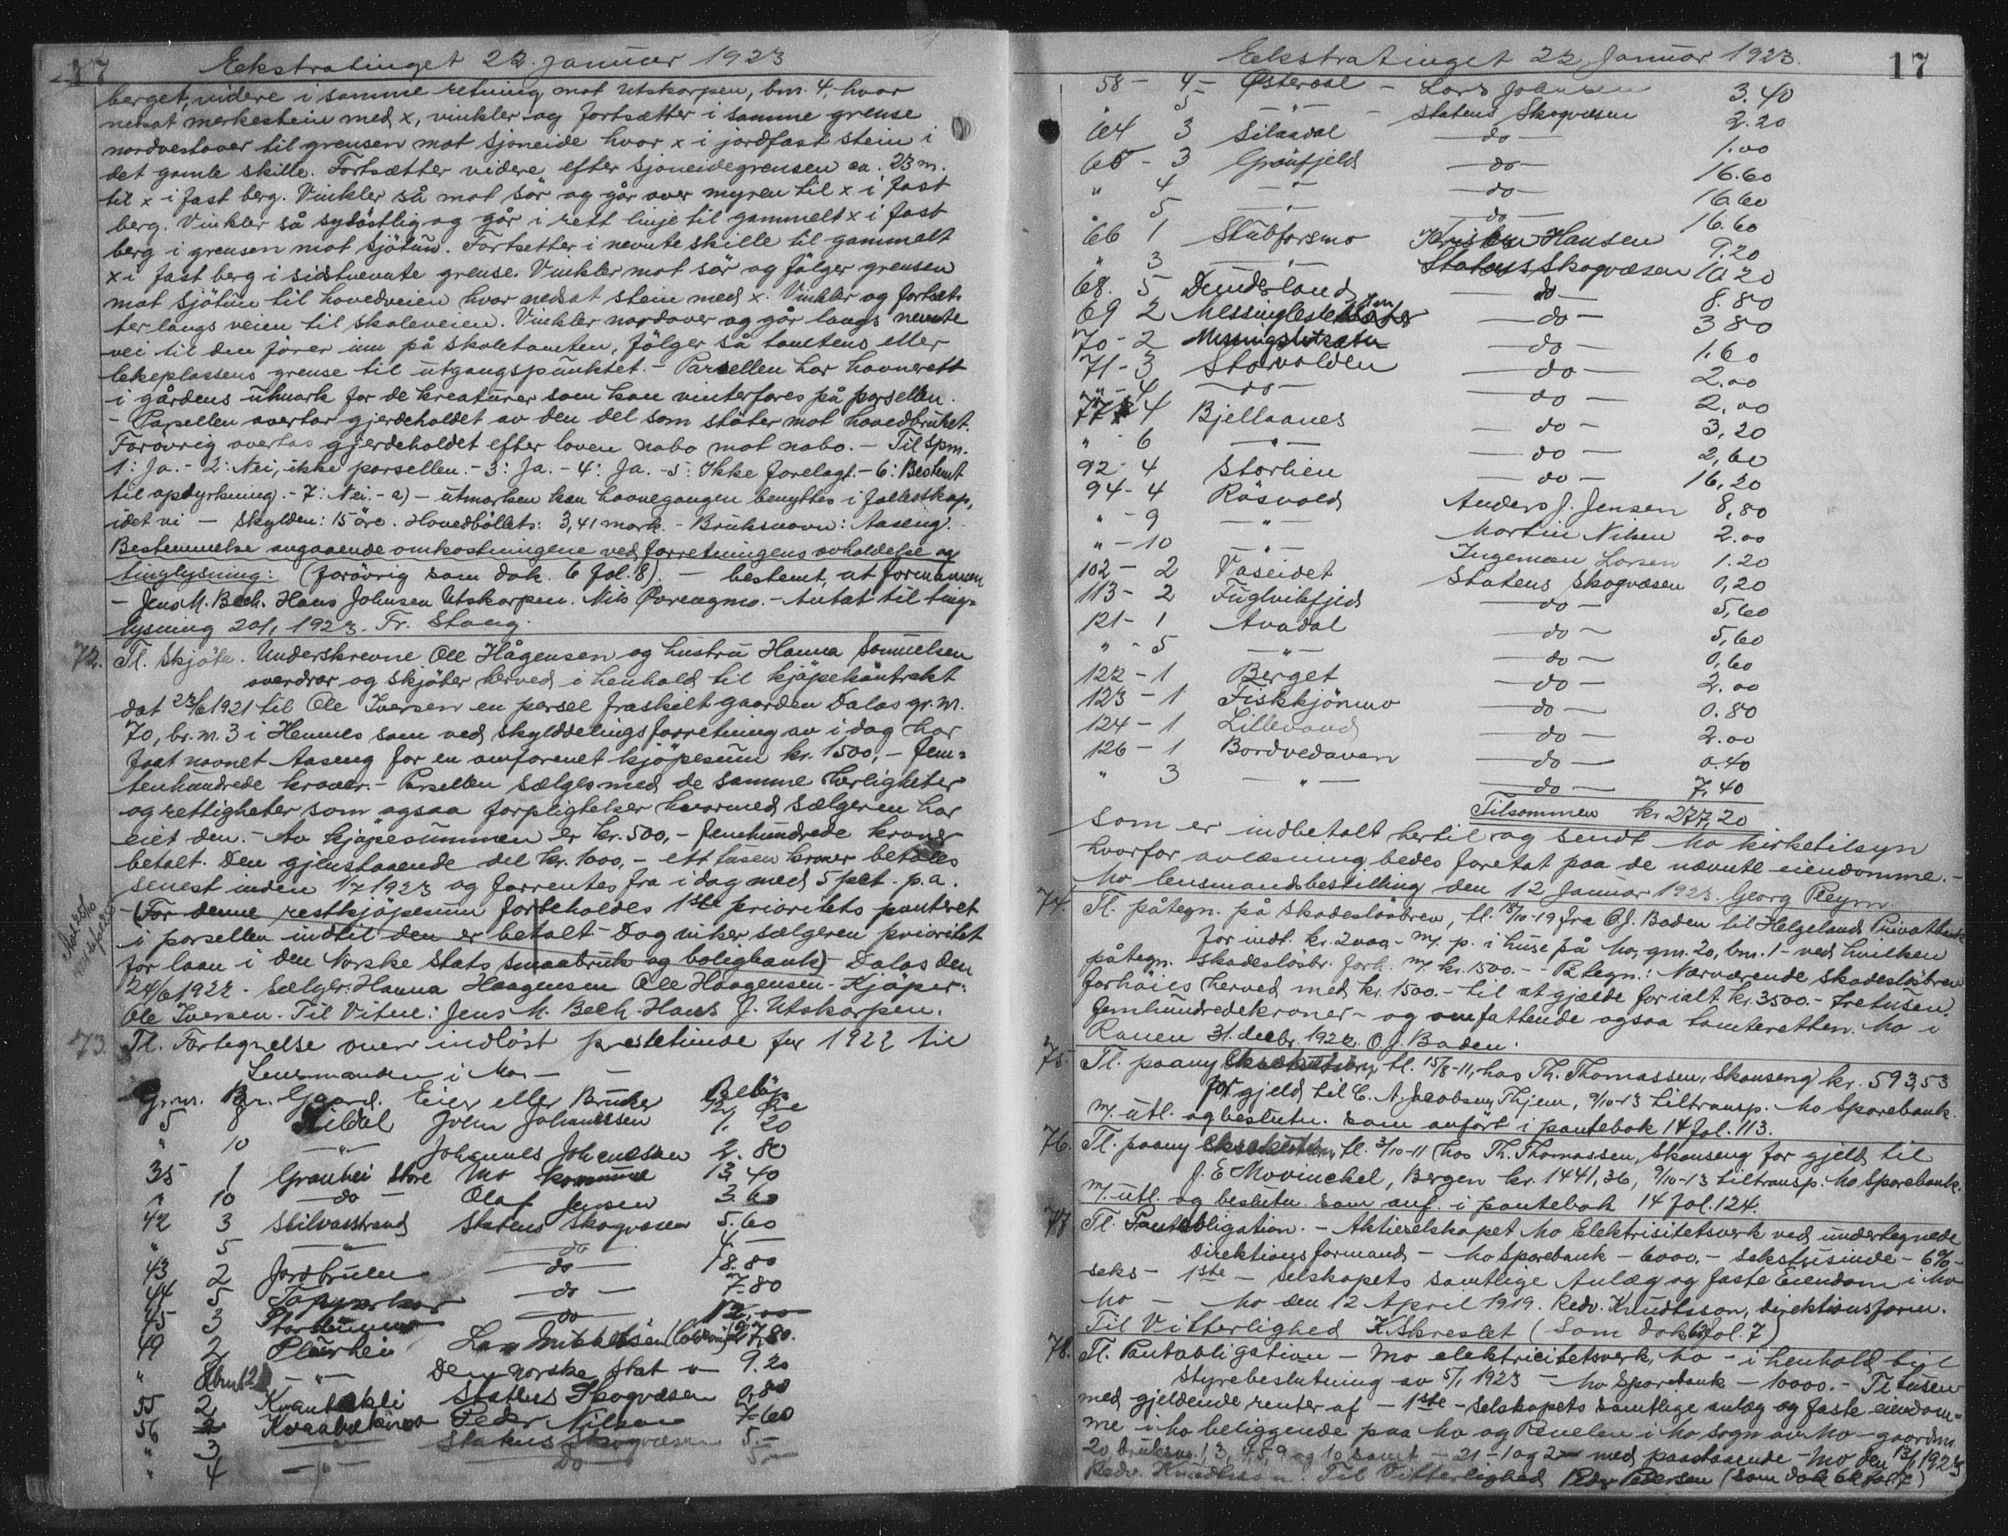 Ekstratinget 22. januar 1923
berget, videre i samme retning mot Utskarpen, bnr. 4, hvor
nedsat merkestein med x, vinkler og fortsætter i samme grense
nordvestover til grensen mot Sjoneide hvor x i jordfast stein i
det gamle skille. Fortsætter videre efter Sjoneidegrensen ca. 23 m.
til x i fast berg. Vinkler så mot sör og går over myren til x i fast
berg. Vinkler så sydöstlig og går i rett linje til gammelt x i fast
berg i grensen mot Sjötun. Fortsetter i nevnte skille til gammelt
x i fast berg i sidstnevnte grense. Vinkler mot sör og fölger grensen
mot Sjötun til hovedveien hvor nedsat stein med x. Vinkler og fortsæt-
ter langs veien til skoleveien. Vinkler nordover og går langs nevnte
vei til den förer inn på skoletomten, fölger så tomtens eller
lekeplassens grense til utgangspunktet. - Parsellen har havnerett
i gårdens utmark for de kreaturer som kan vinterfores på parsellen.
- Parsellen overtar gjerdeholdet av den del som stöter mot hovedbruket.
Forövrig overtas gjerdeholdet efter loven nabo mot nabo. - Til spm.
1: Ja. - 2: Nei, ikke parsellen. - 3: Ja. - 4: Ja. - 5: Ikke forelagt. - 6: Bestemt
til opdyrkning. - 7: Nei. - a) - utmarken kan havnegangen benyttes i fællesskap,
idet vi - Skylden: 15 öre. Hovedböllets: 3,41 mark. - Bruksnavn: Aaseng.
Bestemmelse angaaende omkostningene ved forretningens avholdelse og
tinglysning: (forövrig som dok. 6 fol. 8). - bestemt, at formannen
- Jens M. Bech. Hans Johnsen Utskarpen. Nils Överengmo. - Antat til ting-
lysning 20/1 1923. Fr. Stang.
72. Tl. Skjöte. Underskrevne Ole Hågensen og hustru Hanna Samuelsen
overdrar og skjöter herved i henhold til kjöpekontrakt
dat 23/6 1921 til Ole Iversen en parsel fraskilt gaarden Dalos gr. nr.
70, br. nr. 3 i Hemnes som ved skylddelingsforretning av i dag har
faat navnet Aaseng for en omforenet kjöpesum kr. 1500,- fem-
tenhundrede kroner. - Parsellen sælges med de samme herligheter
og rettigheter som ogsaa forpligtelser hvormed sælgeren har
eiet den. - Av kjöpesummen er kr. 500,- femhundrede kroner
betalt. Den gjenstaaende del kr. 1000,- ett tusen kroner betales
senest inden 1/7 1923 og forrentes fra i dag med 5 pct. p.a.
- (For denne restkjöpesum forbeholdes 1ste prioritets panteret
i parsellen indtil den er betalt - Dog viker sælgeren prioritet
for laan i den Norske Stats smaabruk og boligbank) - Dalos den
24/6 1922. Sælger: Hanna Haagensen Ole Haagensen - Kjöper:
Ole Iversen. Til Vitne: Jens M. Bech Hans J. Utskarpen.
73. Tl. Fortegnelse over indlöst prestetiende for 1922 til
Lensmanden i Mo -
Gr.nr. Br. nr. Gaard. Eier eller Bruker Belöp
Kr. Öre
5 8 Kildal John Johanssen 1. 20
" 10 -"- Johannes Johansen 2. 80
35 1 Granhei store Mo kommune 13. 40
" 10 - do - Olaf Jensen 3. 60
42 3 Stilvasstrand Statens Skogvæsen 5. 60
" 5 -"- do 4 -
43 2 Jordbruen - do - 18. 80
44 5 - do - 7. 80
45 3 do 12. 00
49 2 Plurhei 17,80.
" -"- Den norske stat 9. 20
55 2 Statens Skogvæsen 0,80
56 2 Peder Nilsen 7. 60
" 3 -"- Statens Skogvæsen 5. -
" 4 -"- Do 5 -
Ekstratinget 22 Januar 1923. 17
58 - 4 - Österdal - Lars Johnsen 3. 40
" 5 -"- - Statens Skogvæsen 2. 20
64 3 Silaadal - do - 1. 00
65 - 3 Grönfjeld - do - 16. 60
" 4 -"- - do - 16. 60
" 5 -"- - do - 16. 60
66 1 Stubforsmo Kristen Hansen 9. 20
" 3 -"- Statens Skogvæsen 10. 20
68. 5 Dunderland - do - 8. 80
69 2 - do - 3 80
70 - 2 - do - 1. 60
71 - 3 Storvolden - do - 2. 00
" - 4 - do - - do - 2. 00
77 4 Bjellaanes - do - 3, 20
" - 6 -"- - do - 2, 60
92 - 4 Storlien - do - 16, 20
94 - 4 Rösvold Anders J. Jensen 8, 80
" - 9 -"- Martin Nilsen 2. 00
" - 10 -"- Ingeman Larsen 1. 20
102 - 2 Vaseidet Statens Skogvæsen 0, 20
113 - 2 Fuglvikfjeld - do - 5, 60
121 - 1 Avadal - do - 5, 60
" - 5 -"- - do - 0, 60
122 - 1 Berget - do - 2. 00
123 - 1 Fiskkjönmo - do - 0. 80
124 - 1 Lillevand - do - 2. 00
126 - 1 Bordvedaven - do - 0. 40
" 3 -"- - do - 7. 40
Tilsammen kr. 277,20
som er indbetalt hertil og sendt Mo kirketilsyn
hvorfor avlæsning bedes foretat paa de nævnte eiendomme. -
Mo lensmandsbestilling den 12 Januar 1923. Georg Pleym.
74. Tl. påtegn. på skadeslösbrev, tl. 18/10-19 fra O.J. Baden til Helgelands Privatbank
for indt. kr. 2000 - m. p. i huse på Mo, gnr. 20, bnr. 1 - ved hvilken
påtegn. skadeslösbr. forh. m. kr. 1500. - Påtegn.: Nærværende skadeslösbrev
forhöies herved med kr. 1500. - til at gjælde for ialt kr. 3500. - tretusen
femhundredekroner - og omfattende ogsaa tomteretten. Mo i
Ranen 31. decbr. 1922. O.J. Baden.
75. Tl. paany tl. 15/8-11, hos Th. Thomassen, Skonseng kr. 593,53
for gjeld til C. A. Jacobsen, Thjem, 9/10-13 tiltransp. Mo Sparebank.
m. utl. og beslutn. som anfört i pantebok 14 fol. 113.
76. Tl. paany tl. 3/10-11 hos Th. Thomassen, Skonseng for gjeld til
J. E Mowinckel, Bergen kr. 1441,36, 9/10-13 tiltransp. Mo Sparebank.
m. utl. og beslutn. som anf. i pantebok 14 fol. 124.
77 Tl. Panteobligation. - Aktieselskapet Mo Elektrisitetsverk ved undertegnede
direktionsformand - Mo Sparebank - 6000. - sekstusinde - 6% -
seks - 1ste - selskapets samtlige Anlæg og faste Eiendom i Mo
Mo - Mo den 12 April 1919. Redv. Knudtsson, direktionsform.
Til Vitterlighed K. Skreslet (som dok fol. 7)
78. Tl. Pantobligation - Mo elektricitetsverk, Mo - i henhold til
styrebeslutning av 5/1 1923 - Mo Sparebank - 10000. - Ti tusen
med gjeldende renter af - 1ste - selskapets samtlige anlæg og faste eiendom-
me i Mo beliggende paa Mo og i Mo sogn av Mo - gaardsnr.
20 bruksnr. 1 3, 4, 5, 9 og 10 samt - 21 - 1 og 2 med paastaaende - Mo den 13/1 1923
Redv. Knudtsson. Til Vitterlighed Pedersen (som dok 62 fol. 7)